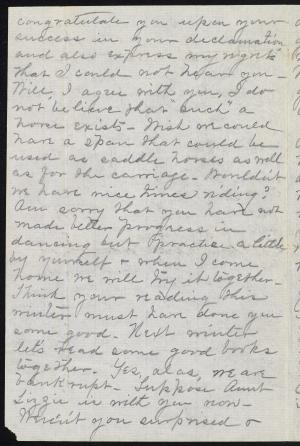 congratulate you upon your
success in your declamation
and also express my regrets
that I could not hear you -
Will, I agree with you, I do
not believe that "such" a
horse exists - Wish we could
have a span that could be
used as saddle horses as well
as for the carriage - Wouldn't
we have nice times riding?
Am sorry that you have not
made better progress in
dancing but practise a little
by yourself & when I come
home we will try it together.
Think your reading this
winter must have done you
some good. Next winter
let's read some good books
together. Yes, alas, we are
bankrupt. Suppose Aunt
Lizzie is with you now -
Weren't you surprised &